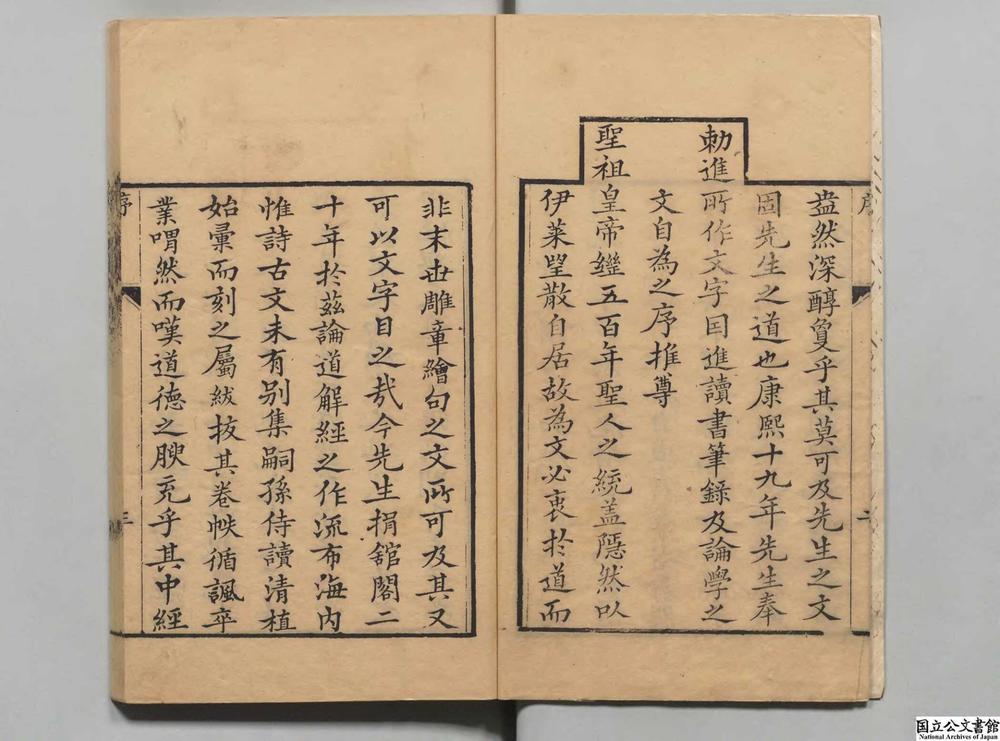 盎然深醇敻乎其莫可及先生之文
固先生之道也康熙十九年先生奉
勅進所作文字因進讀書筆錄及論學之
文自為之序推尊
聖祖皇帝繼五百年聖人之統蓋隱然以
伊萊望散自居故為文必衷於道而
序
二
非末世雕章繪句之文所可及其又
可以文字目之㢤今先生捐舘閣二
十年於茲論道解經之作流布海内
惟詩古文未有別集嗣孫侍讀清植
始彙而刻之屬紱拔其卷帙循諷卒
業喟然而嘆道徳之腴充乎其中經
序
三
国立公文書館
National Archives of Japan